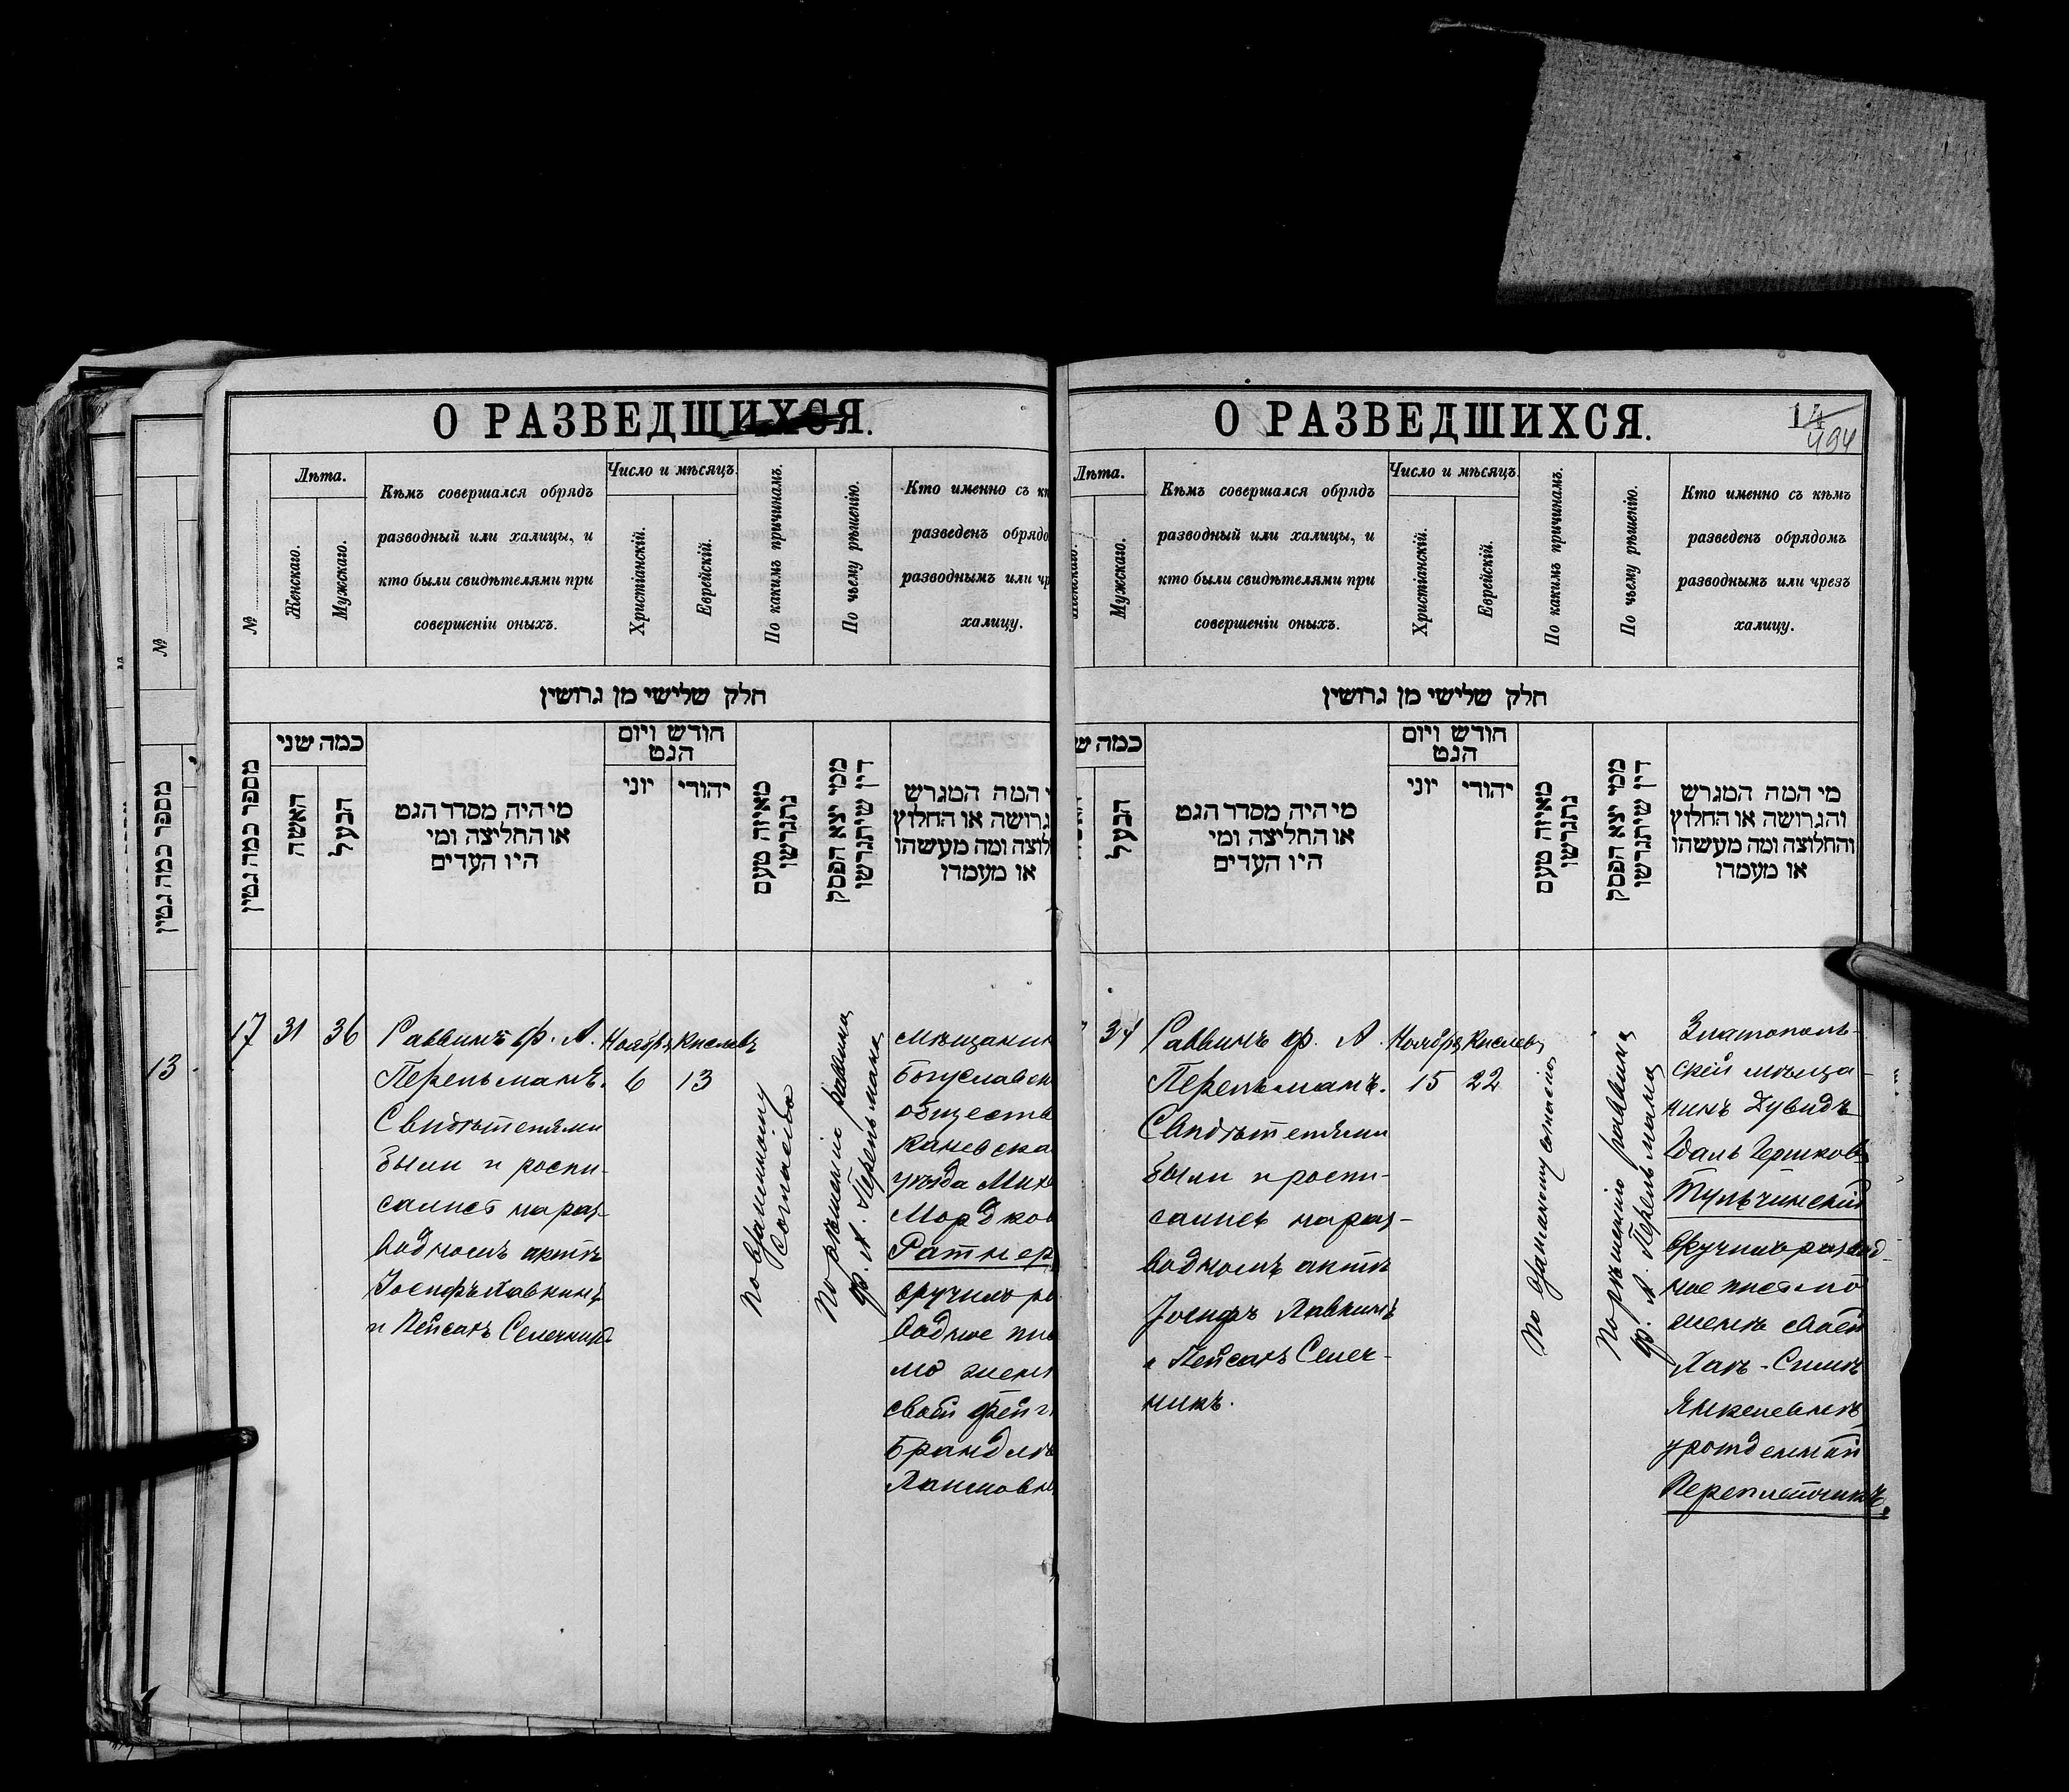 О РАЗВЕДШИХСЯ.
№
Лѣта.
Женскаго.
Мужскаго.
Кѣмъ совершался обрядъ
разводный или халицы, и
кто были свидѣтелями при
совершеніи оныхъ.
Число и мѣсяцъ.
Христіанскій.
Еврейскій.
По какимъ причинамъ.
По чьему рѣшенію.
Кто именно съ
разведенъ
разводнымъ или
халицу.
חלק שלישי מן גרושין
מספר כמה גטין
כמה שני
האשה
הבעל
מי היה מסדר הגט
או החליצה ומי
היו העדים
חודש ויום
הגט
יוני
יהודי
מאיזה טעם
נתגרשו
ממי יצא הפסק
דין שיתגרשו
המה המגרש
גרושה או החלוץ
ומה מעשהו
או מעמדו
17
31
36
Раввинъ Ф. А.
Перельманъ.
Свидѣтелями
были и роспи-
сались на раз-
водномъ актѣ
Іосифъ Хавкинъ
и Пейсахъ Селечникъ
Ноября
6
Кислевъ
13
По взаимному
согласію
По рѣшенію раввина
Ф. А. Перельмана
Мѣщанин
Богуславск
общества
Каневска
уѣзда
Мордков
Ратнер
вручилъ ра
водное пис
мо женѣ
своей Фейг
Брандлѣ
№
מספר כמה גטין
13
О РАЗВЕДШИХСЯ.
14
494
Лѣта.
Мужскаго.
Кѣмъ совершался обрядъ
разводный или халицы, и
кто были свидѣтелями при
совершеніи оныхъ.
Число и мѣсяцъ.
Христіанскій.
Еврейскій.
По какимъ причинамъ.
По чьему рѣшенію.
Кто именно съ кѣмъ
разведенъ обрядомъ
разводнымъ или чрезъ
халицу.
חלק שלישי מן גרושין
כמה ש
הבעל
מי היה מסדר הגט
או החליצה ומי
היו העדים
חודש ויום
הגט
יוני
יהודי
מאיזה טעם
נתגרשו
ממי יצא הפסק
דין שיתגרשו
מי המה המגרש
והגרושה או החלוץ
והחלוצה ומה מעשהו
או מעמדו
34
Раввинъ Ф. А.
Перельманъ.
Свидѣтелями
были и роспи-
сались на раз-
водномъ актѣ
Іосифъ Хавкинъ
и Пейсахъ Селеч-
никъ.
Ноября
15
Кислевъ
22
По взаимному согласію
По рѣшенію раввина
Ф. А. Перельмана
Златополь-
скій мѣща-
нинъ Дувидъ
Гершковъ
Тульчинскій
вручилъ развод-
ное письмо
женѣ своей
Янкелевнѣ
урожденной
Переплетчикъ.